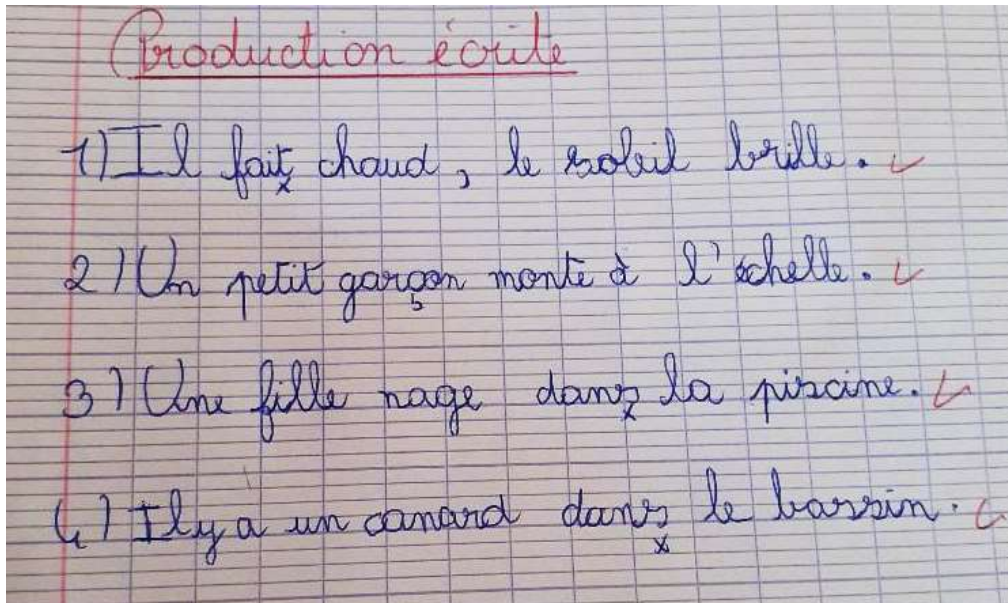 Production écrite
1) Il fait chaud, le soleil brille.
2) Un petit garçon monte à l'échelle.
3) Une fille nage dans la piscine.
4) Il y a un canard dans le bassin.